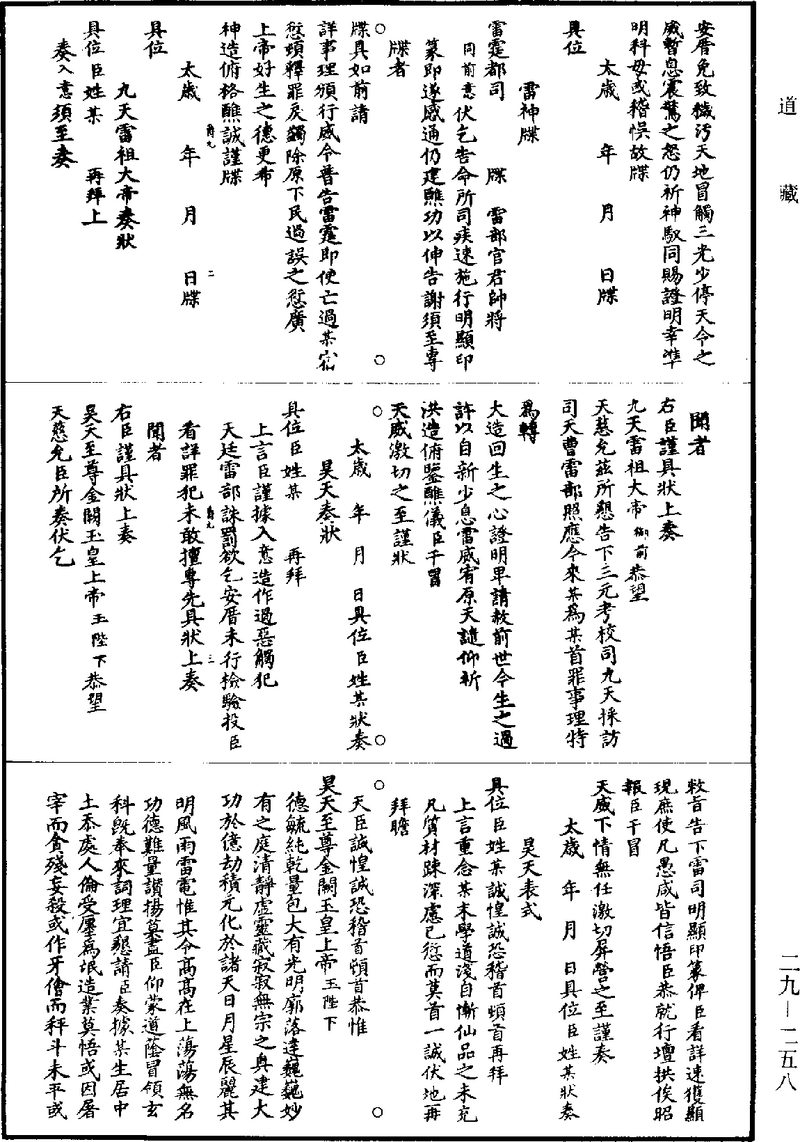 道藏
安厝免致穢污天地冒觸三光少停天令之
威暫息震驚之怒仍祈神馭同賜證明幸準
明科毋或稽悮故牒
太歲 年 月 日牒
具位
雷神牒
雷霆都司 牒 雷部官君帥將
同前意伏乞告命所司疾速施行明顯印
篆即遂感通仍建醮功以伸告謝須至專
牒者
牒具如前請
詳事理頒行威令普告雷霆即使亡過某宿
愆頓釋罪戾蠲除原下民過誤之愆廣
上帝好生之德更希
神造俯格醮誠謹牒
太歲 年 月 日牒
具位
九天雷祖大帝奏狀
具位臣姓某 再拜上
奏入意須至奏
聞者
右臣謹具狀上奏
九天雷祖大帝御前恭望
天慈允茲所懇告下三元考校司九天採訪
司天曹雷部照應今來某為某首罪事理特
為轉
大造回生之心證明卑請赦前世今生之過
許以自新少息雷威宥原天譴仰祈
洪造俯鑒醮儀臣干冒
天威激切之至謹狀
太歲 年 月 日具位臣姓某狀奏
昊天奏狀
具位臣姓某 再拜
上言臣謹據入意造作過惡觸犯
天廷雷部誅罰欲乞安厝未行檢驗投臣
看詳罪犯未敢擅專先具狀上奏
聞者
右臣謹具狀上奏
昊天至尊金闕玉皇上帝玉陛下恭望
天慈允臣所奏伏乞
敕旨告下雷司明顯印篆俾臣看詳速獲顯
現庶使凡愚咸皆信悟臣恭就行壇拱俟昭
報臣干冒
天威下情無任激切屏營之至謹奏
太歲 年 月 日具位臣姓某狀奏
昊天表式
具位臣姓某誠惶誠恐稽首頓首再拜
上言重念某末學道淺自慚仙品之未充
凡質材疎深慮已愆而莫首一誠伏地再
拜瞻
天臣誠惶誠恐稽首頓首恭惟
昊天至尊金闕玉皇上帝玉陛下
德毓純乾量包大有光明廓落達巍巍妙
有之庭清靜虛靈藏寂寂無宗之奧建大
功於億劫積元化於諸天日月星辰麗其
明風雨雷電惟其令高高在上蕩蕩無名
功德難量讚揚莫盡臣仰蒙道蔭冒領玄
科既奉來詞理宜懇請臣奏據某生居中
土忝處人倫受廛為氓造業莫悟或因屠
宰而貪殘妄殺或作牙儈而秤斗未平或
二九—二五八